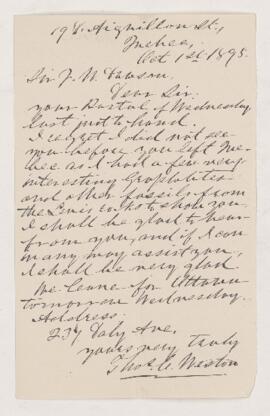 198. Aiguillon St.,
Quebec,
Oct 1st 1895.
Sir J. W. Dawson.
Dear Sir.
your Postal of Wednesday
last just to hand.
I regret I did not see
you before you left Que-
bec as I had a few very
interesting Graptolites
and other fossils from
the Levis rocks to show you.
I shall be glad to hear
from you, and if I can
in any way assist you,
I shall be very glad
We leave for Ottawa
tomorrow Wednesday.
Address.
Daly Ave,
yours very truly
Thos. C. Weston